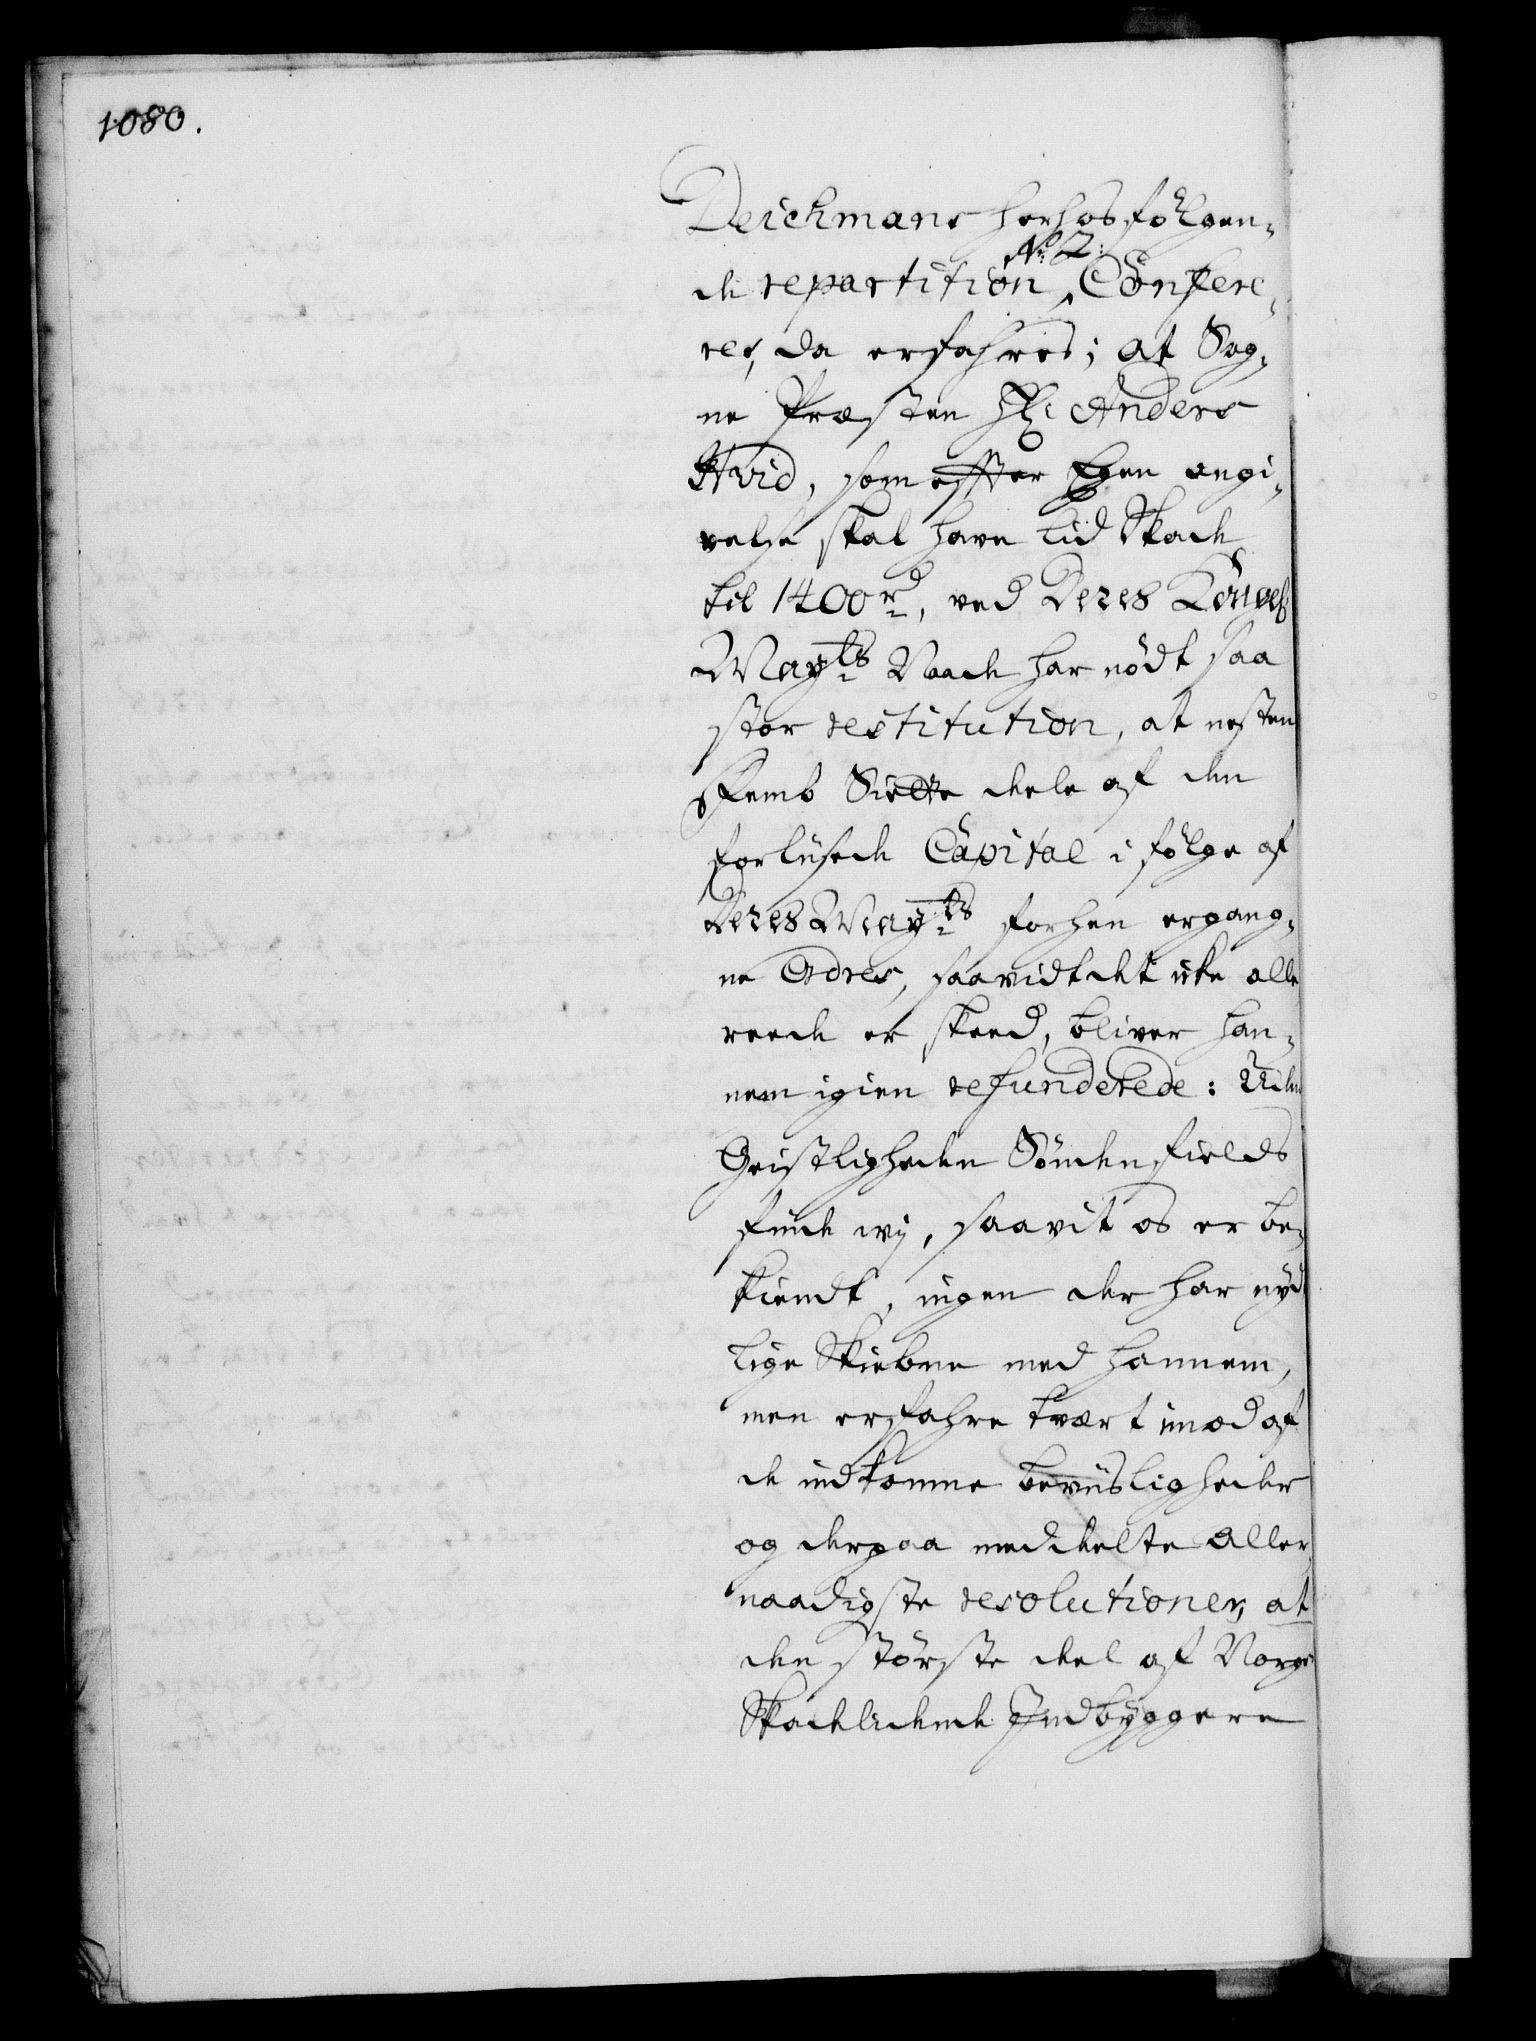 1080.
Deichmans herhos følgen-
No 2:
de repartition Confere-
res, da erfahres; at Sog-
ne Præsten Hr: Anders
Hvid, som effter Egen angi-
velse skal have lid Skade
til 1400 rd, ved Deres Konge:
Mayts Naade har nødt saa
stor restitution, at nesten
Femb Siette deele af den
forliiste Capital i følge af
Deres Mayts forhen ergang-
ne Ordres, saavidt det icke alle
reede er skeed, bliver han-
nem igien refunderede: Uden
Geistligheden Sønden fields
finde wij, saavit os er be-
kiendt, ingen der har nyd
lige Skiebne med hannem,
men erfahre tvært imod af
de indkomne beviisligheder
og derpaa meddeelte Aller
naadigste resolutioner, at
den største deel af Norges
Skadelidende Indbyggere